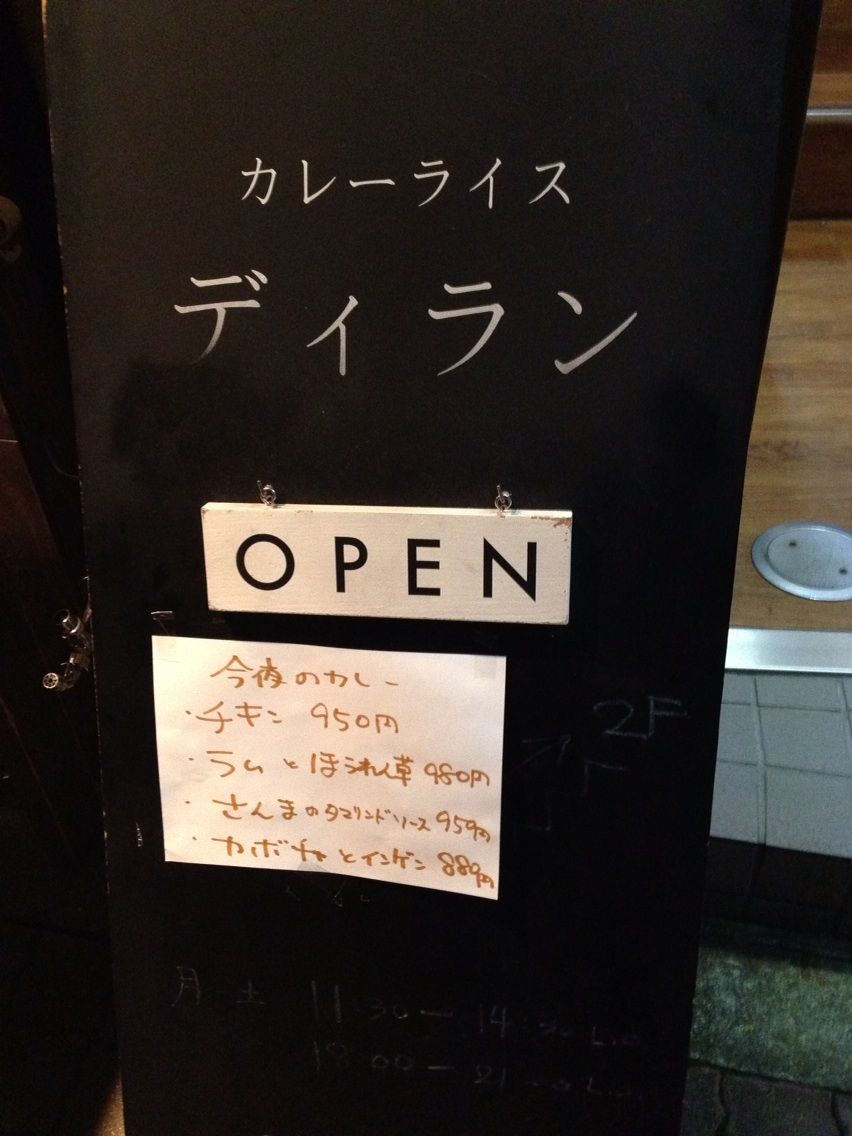 カレーライス
ディラン
OPEN
今夜のカレー
・チキン 950円
・ラムとほうれん草 980円
・さんまのタマリンドソース 950円
・カボチャとインゲン 880円
2F
月－土 11:30－14:30 L.O
18:00－21:00 L.O